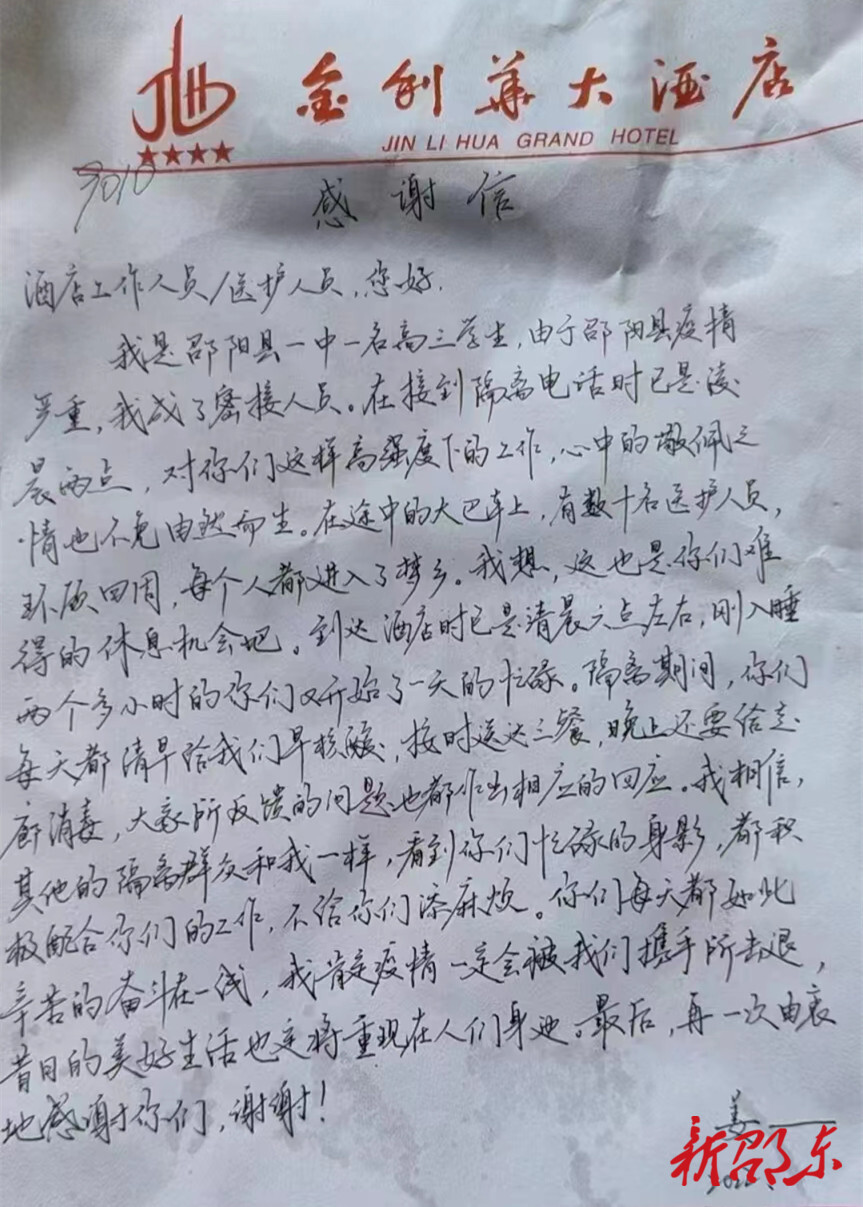 JLH
金利华大酒店
JIN LI HUA GRAND HOTEL
9010
感谢信
酒店工作人员/医护人员,您好.
我是邵阳县一中一名高三学生,由于邵阳县疫情
严重,我成了密接人员。在接到隔离电话时已是凌
晨两点,对你们这样高强度下的工作,心中的敬佩之
情也不免由然而生。在途中的大巴车上,有数十名医护人员,
环顾四周,每个人都进入了梦乡。我想,这也是你们难
得的休息机会吧。到达酒店时已是清晨六点左右,刚入睡
两个多小时的你们又开始了一天的忙碌。隔离期间,你们
每天都清早给我们早核酸,按时送达三餐,晚上还要给走
廊消毒,大家所反馈的问题也都作出相应的回应。我相信,
其他的隔离群众和我一样,看到你们忙碌的身影,都积
极配合你们的工作,不给你们添麻烦。你们每天都如此
辛苦的奋斗在一线,我肯定疫情一定会被我们携手所击退,
昔日的美好生活也定将重现在人们身边。最后,再一次由衷
地感谢你们,谢谢!
姜
新邵东